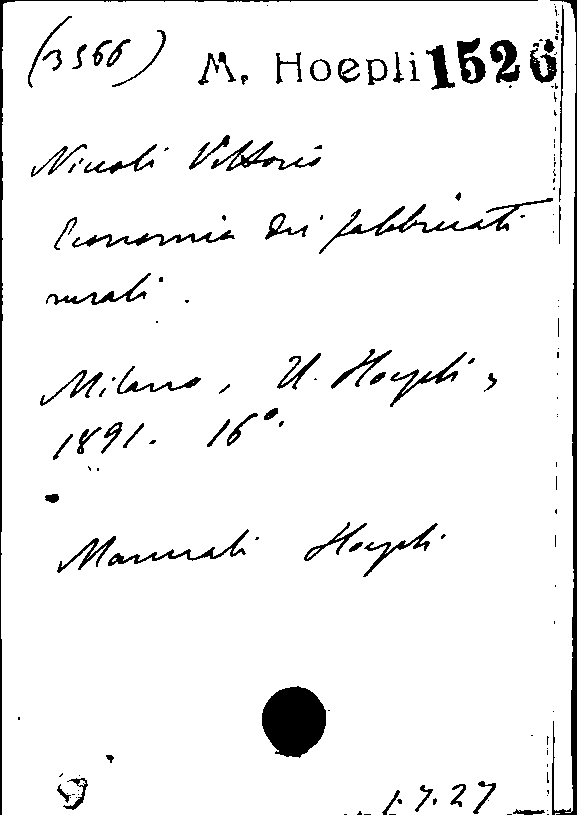 (3566) M. Hoepli 1526
Niccoli Vittorio
Economia dei fabbricati
rurali.
Milano, U. Hoepli,
1891. 16°.
Manuali Hoepli
1.7.27